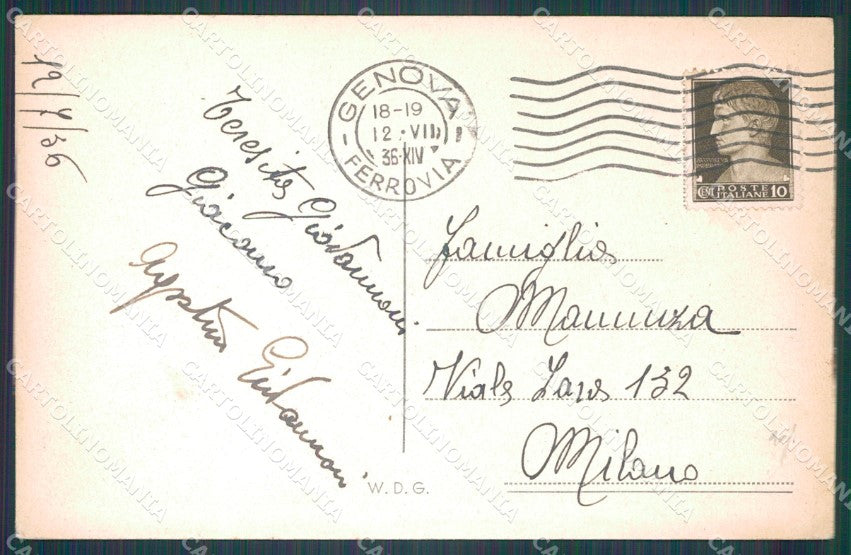 12/7/36
Teresita Giovannoni
Giacomo
Agostino Giovannoni
GENOVA
18-19
12 · VII
36·XIV
FERROVIA
POSTE
ITALIANE 10
Famiglia
Viale Zara 132
Milano
W.D.G.
CARTOLINOMANIA